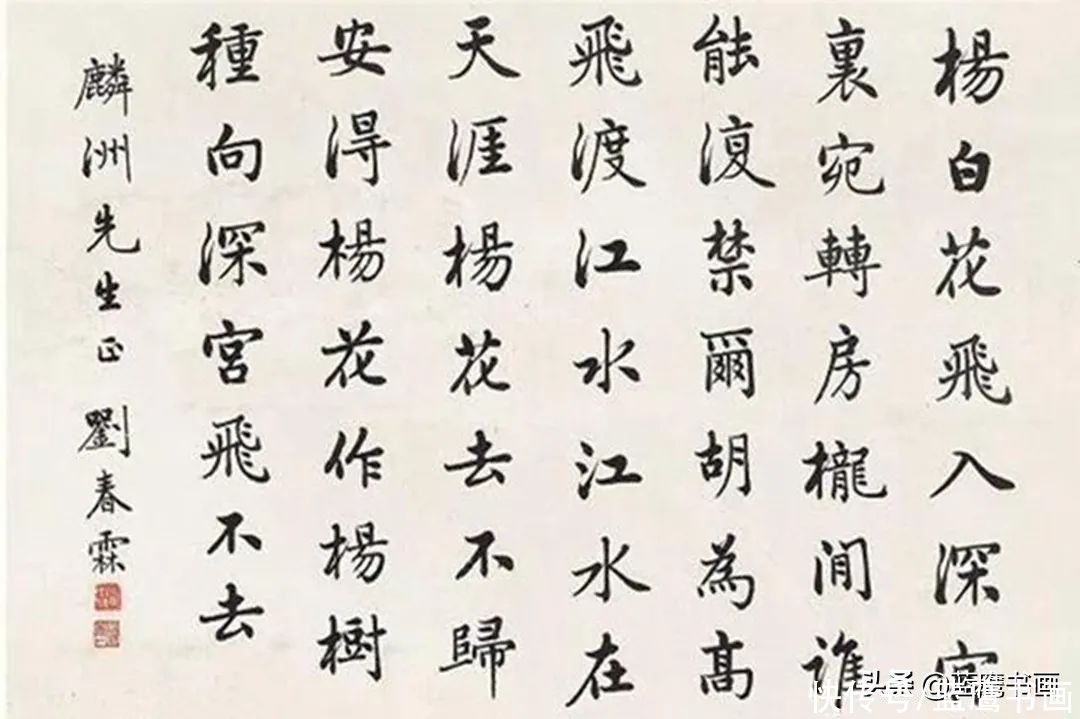 楊白花飛入深宮
裏宛轉房櫳間誰
能復禁爾胡為高
飛渡江水江水在
天涯楊花去不歸
安得楊花作楊樹
種向深宮飛不去
麟洲先生正 劉春霖
头条 @蓝鹰书画
快传号/蓝鹰书画